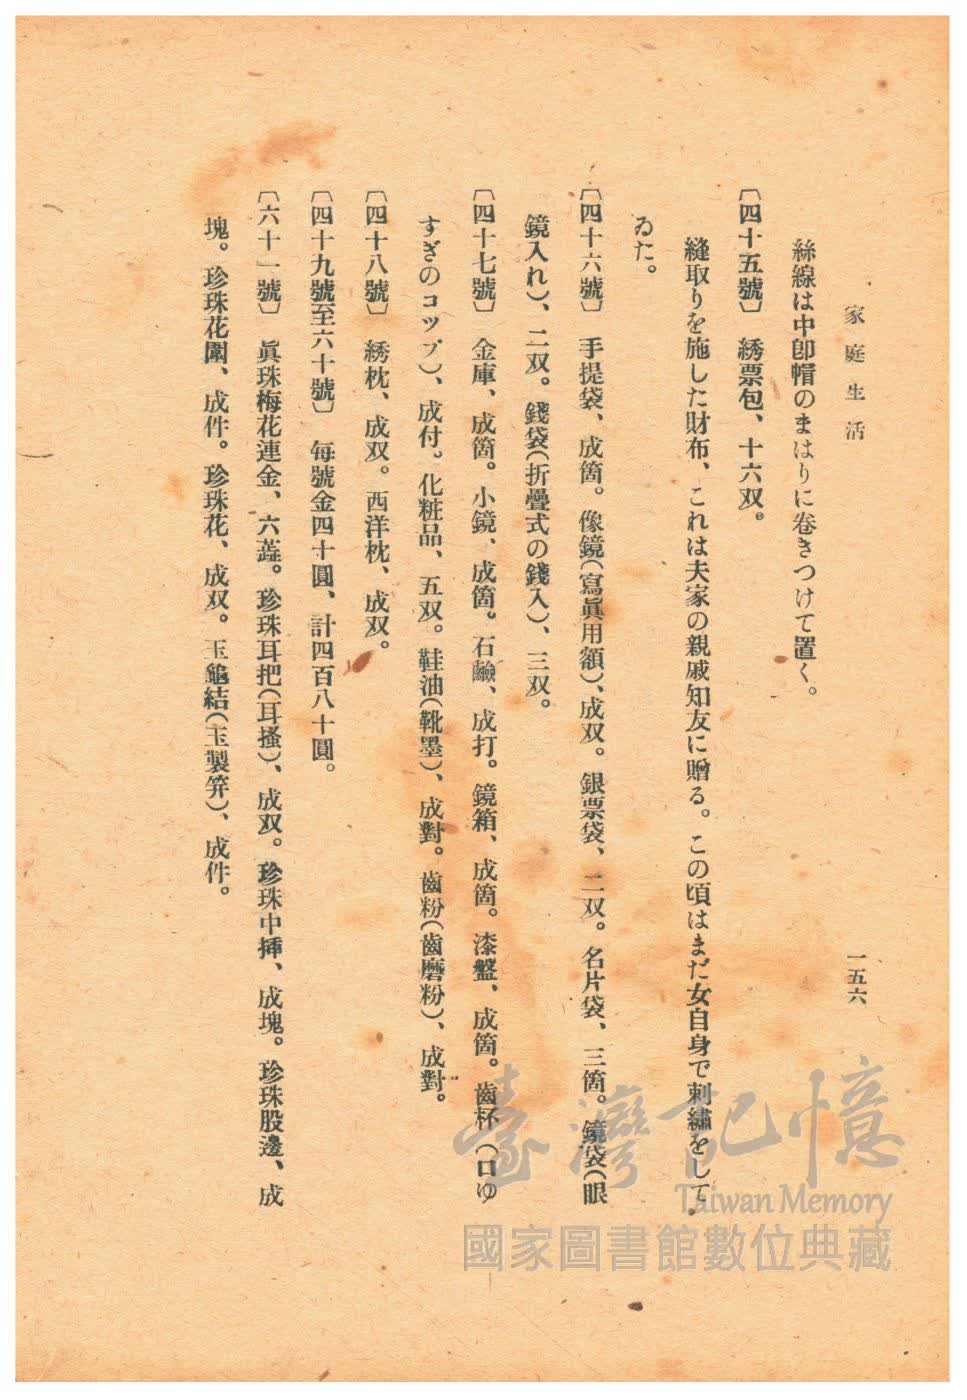 家庭生活
一五六
絲線は中卽帽のまはりに卷きつけて置く。
〔四十五號〕 綉票包、十六双。
縫取りを施した財布、これは夫家の親戚知友に贈る。この頃はまだ女自身で刺繡をして
ゐた。
〔四十六號〕 手提袋、成箇。像鏡(寫眞用額)、成双。銀票袋、二双。名片袋、三箇。鏡袋(眼
鏡入れ)、二双。錢袋(折疊式の錢入)、三双。
〔四十七號〕 金庫、成箇。小鏡、成箇。石鹼、成打。鏡箱、成箇。漆盤、成箇。齒杯(口ゆ
すぎのコップ)、成付。化粧品、五双。鞋油(靴墨)、成對。齒粉(齒磨粉)、成對。
〔四十八號〕 綉枕、成双。西洋枕、成双。
〔四十九號至六十號〕 每號金四十圓、計四百八十圓。
〔六十一號〕 眞珠梅花連金、六蕋。珍珠耳把(耳搔)、成双。珍珠中揷、成塊。珍珠股邊、成
塊。珍珠花圍、成件。珍珠花、成双。玉龜結(玉製笄)、成件。
臺灣記憶
Taiwan Memory
國家圖書館數位典藏